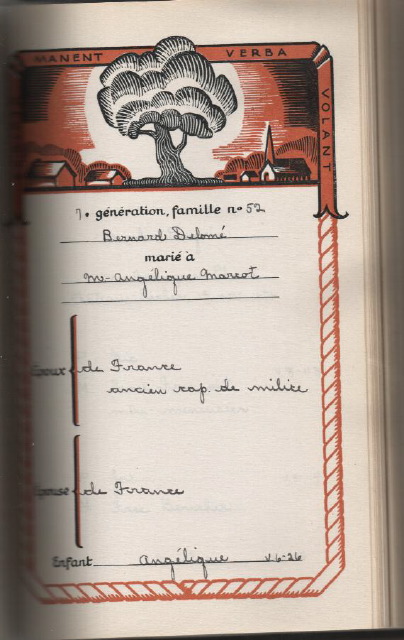 MANENT VERBA VOLANT
7. génération, famille nº 52
Bernard Delomé
marié à
M-Angélique Marcot
Époux de France
ancien cap. de milice
Épouse de France
Enfant Angélique V.6-26